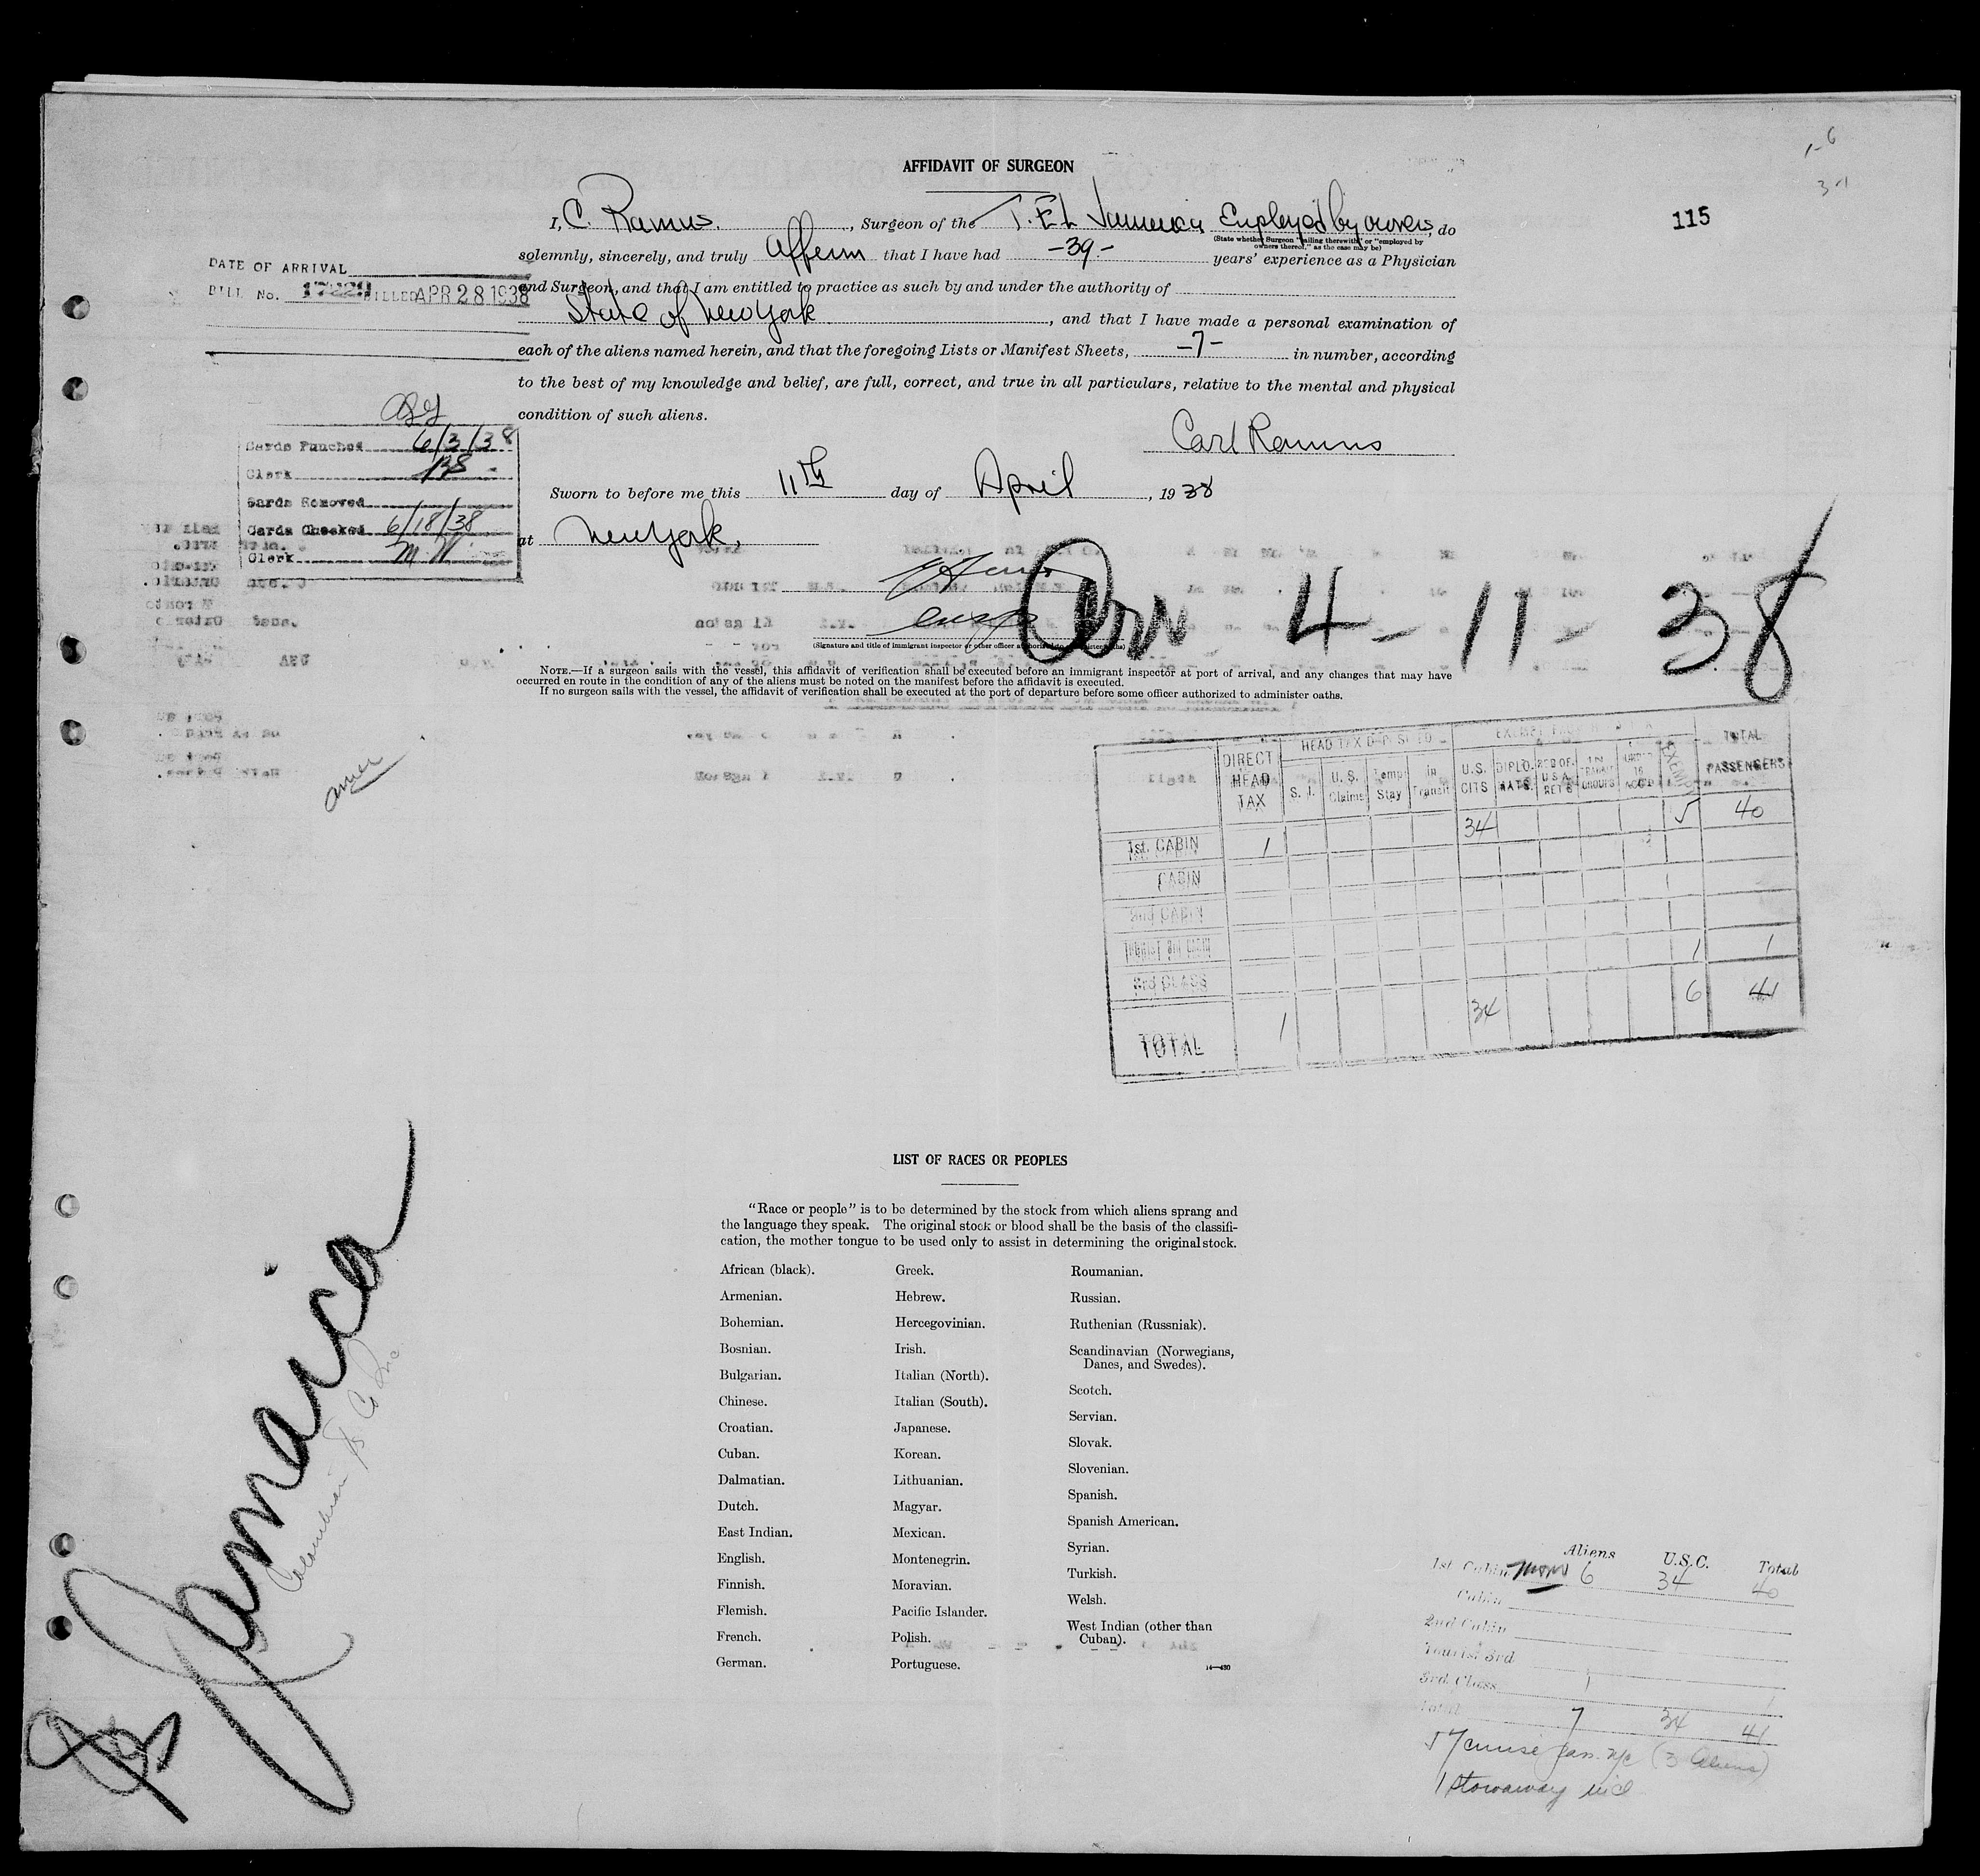 AFFIDAVIT OF SURGEON
115
I, C. Ramus., Surgeon of the Jamaica Employed by owners, do
(State whether Surgeon "sailing therewith" or "employed by
owners thereof," as the case may be)
solemnly, sincerely, and truly affirm that I have had -39- years' experience as a Physician
and Surgeon, and that I am entitled to practice as such by and under the authority of
State of New York, and that I have made a personal examination of
each of the aliens named herein, and that the foregoing Lists or Manifest Sheets, -7- in number, according
to the best of my knowledge and belief, are full, correct, and true in all particulars, relative to the mental and physical
condition of such aliens.
Carl Ramus
Sworn to before me this 11th day of April, 1938
at New York.
(Signature and title of immigrant inspector or other officer authorized to administer oaths)
NOTE.—If a surgeon sails with the vessel, this affidavit of verification shall be executed before an immigrant inspector at port of arrival, and any changes that may have
occurred en route in the condition of any of the aliens must be noted on the manifest before the affidavit is executed.
If no surgeon sails with the vessel, the affidavit of verification shall be executed at the port of departure before some officer authorized to administer oaths.
DATE OF ARRIVAL
BILL No. BILLED APR 28 1938
Cards Punched 6/3/38
Clerk
Cards Removed
Cards Checked 6/18/38
Clerk
Arr 4-11-38
DIRECT HEAD TAX
HEAD TAX DEPOSITED
S. I.
U. S. Claims
Temp Stay
In Transit
U.S. CITS
DIPLOMATS
TOTAL PASSENGERS
1st. CABIN 1 34 5 40
CABIN
2nd CABIN
TOURIST 3rd CABIN 1 1
3rd CLASS
TOTAL 1 34 6 41
LIST OF RACES OR PEOPLES
"Race or people" is to be determined by the stock from which aliens sprang and
the language they speak. The original stock or blood shall be the basis of the classifi-
cation, the mother tongue to be used only to assist in determining the original stock.
African (black).
Armenian.
Bohemian.
Bosnian.
Bulgarian.
Chinese.
Croatian.
Cuban.
Dalmatian.
Dutch.
East Indian.
English.
Finnish.
Flemish.
French.
German.
Greek.
Hebrew.
Hercegovinian.
Irish.
Italian (North).
Italian (South).
Japanese.
Korean.
Lithuanian.
Magyar.
Mexican.
Montenegrin.
Moravian.
Pacific Islander.
Polish.
Portuguese.
Roumanian.
Russian.
Ruthenian (Russniak).
Scandinavian (Norwegians,
Danes, and Swedes).
Scotch.
Servian.
Slovak.
Slovenian.
Spanish.
Spanish American.
Syrian.
Turkish.
Welsh.
West Indian (other than
Cuban).
14—430
SS Jamaica
Colombian SS Co Inc
Aliens U.S.C. Total
1st Cabin 6 34 40
Cabin
2nd Cabin
Tourist 3rd
3rd Class 1 1
Total 7 34 41
57 cruise pass. (3 Aliens)
1 stowaway incl